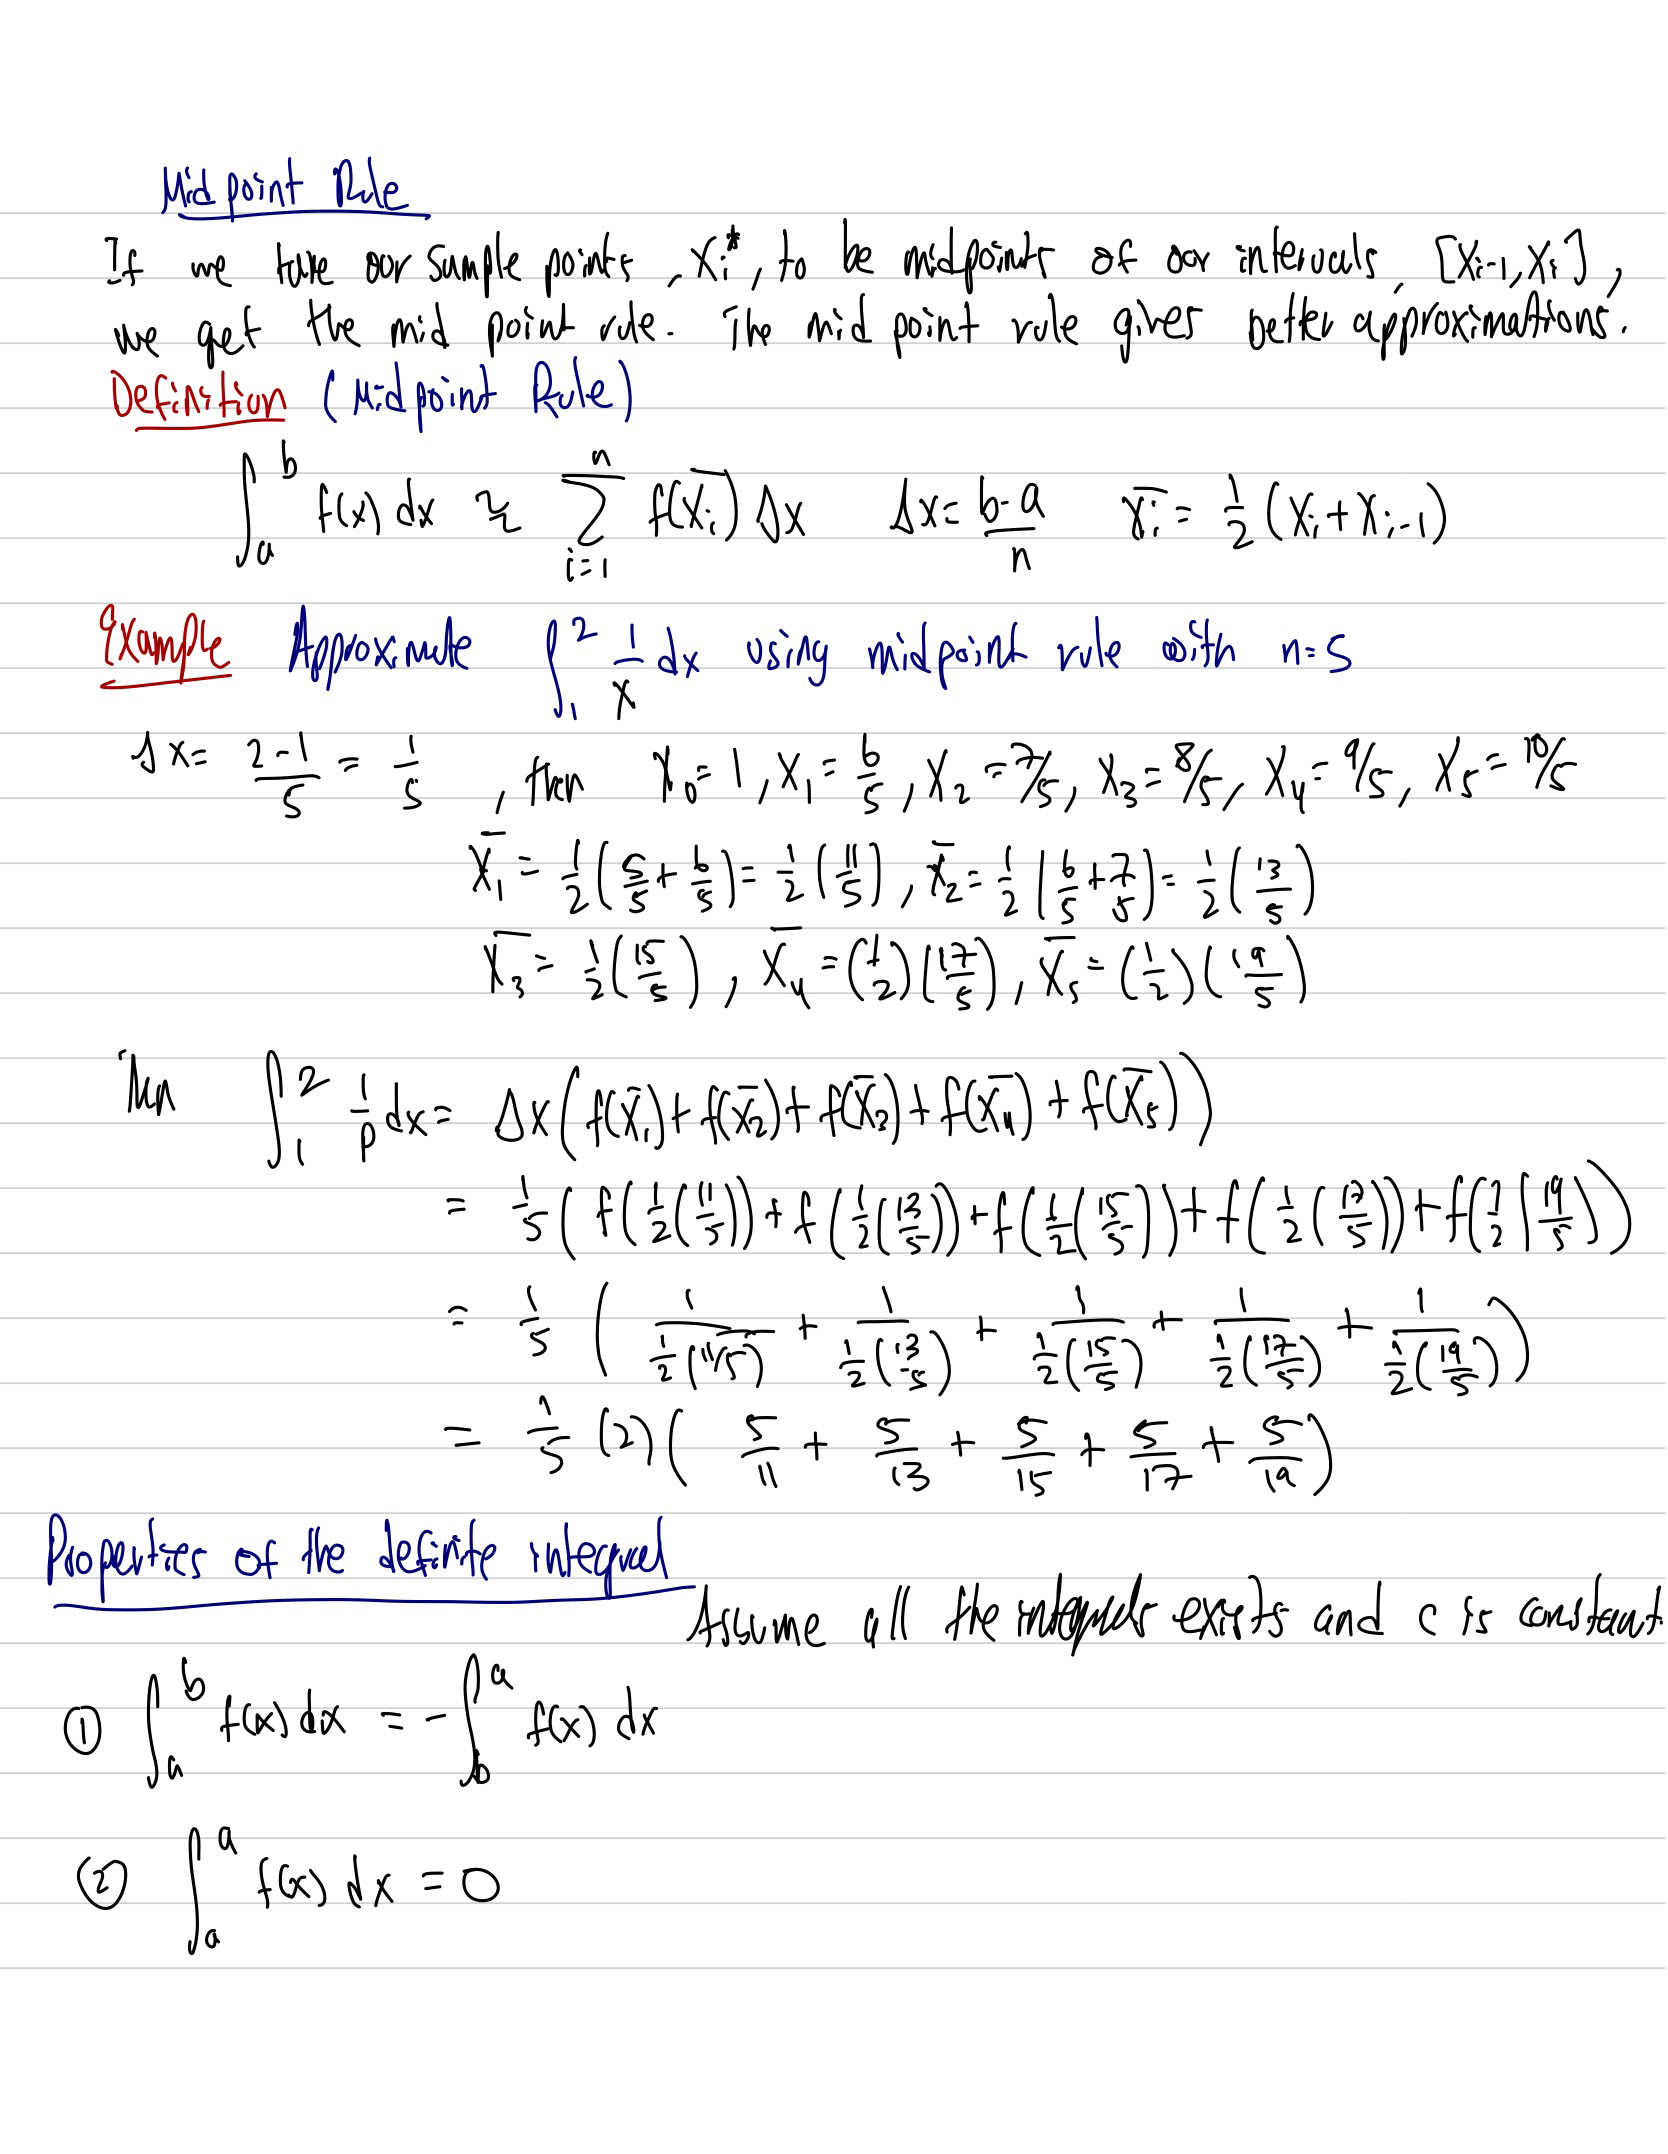 Midpoint Rule
If we take our sample points, Xᵢ*, to be midpoints of our intervals, [Xᵢ₋₁, Xᵢ],
we get the mid point rule. The mid point rule gives better approximations.
Definition (Midpoint Rule)
∫ₐᵇ f(x) dx ≈ ∑ᵢ₌₁ⁿ f(X̄ᵢ) Δx Δx = (b-a)/n X̄ᵢ = 1/2 (Xᵢ + Xᵢ₋₁)
Example Approximate ∫₁² 1/x dx using midpoint rule with n=5
Δx = (2-1)/5 = 1/5, then X₀ = 1, X₁ = 6/5, X₂ = 7/5, X₃ = 8/5, X₄ = 9/5, X₅ = 10/5
X̄₁ = 1/2 (5/5 + 6/5) = 1/2 (11/5), X̄₂ = 1/2 (6/5 + 7/5) = 1/2 (13/5)
X̄₃ = 1/2 (15/5), X̄₄ = (1/2)(17/5), X̄₅ = (1/2)(19/5)
Then ∫₁² 1/p dx = Δx (f(X̄₁) + f(X̄₂) + f(X̄₃) + f(X̄₄) + f(X̄₅))
= 1/5 (f(1/2(11/5)) + f(1/2(13/5)) + f(1/2(15/5)) + f(1/2(17/5)) + f(1/2(19/5)))
= 1/5 (1/(1/2(11/5)) + 1/(1/2(13/5)) + 1/(1/2(15/5)) + 1/(1/2(17/5)) + 1/(1/2(19/5)))
= 1/5 (2)(5/11 + 5/13 + 5/15 + 5/17 + 5/19)
Properties of the definite integral
Assume all the integrals exists and c is constant.
① ∫ₐᵇ f(x) dx = -∫_b^a f(x) dx
② ∫ₐᵃ f(x) dx = 0